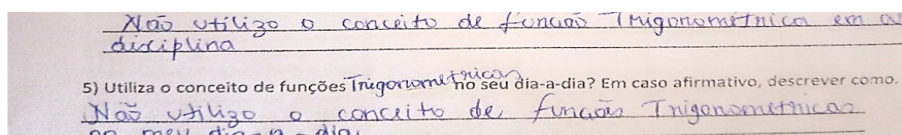 Não utilizo o conceito de função Trigonométrica em
disciplina
5) Utiliza o conceito de funções Trigonometricas no seu dia-a-dia? Em caso afirmativo, descrever como.
Não utilizo o conceito de função Trigonometricas
no meu dia-a-dia,